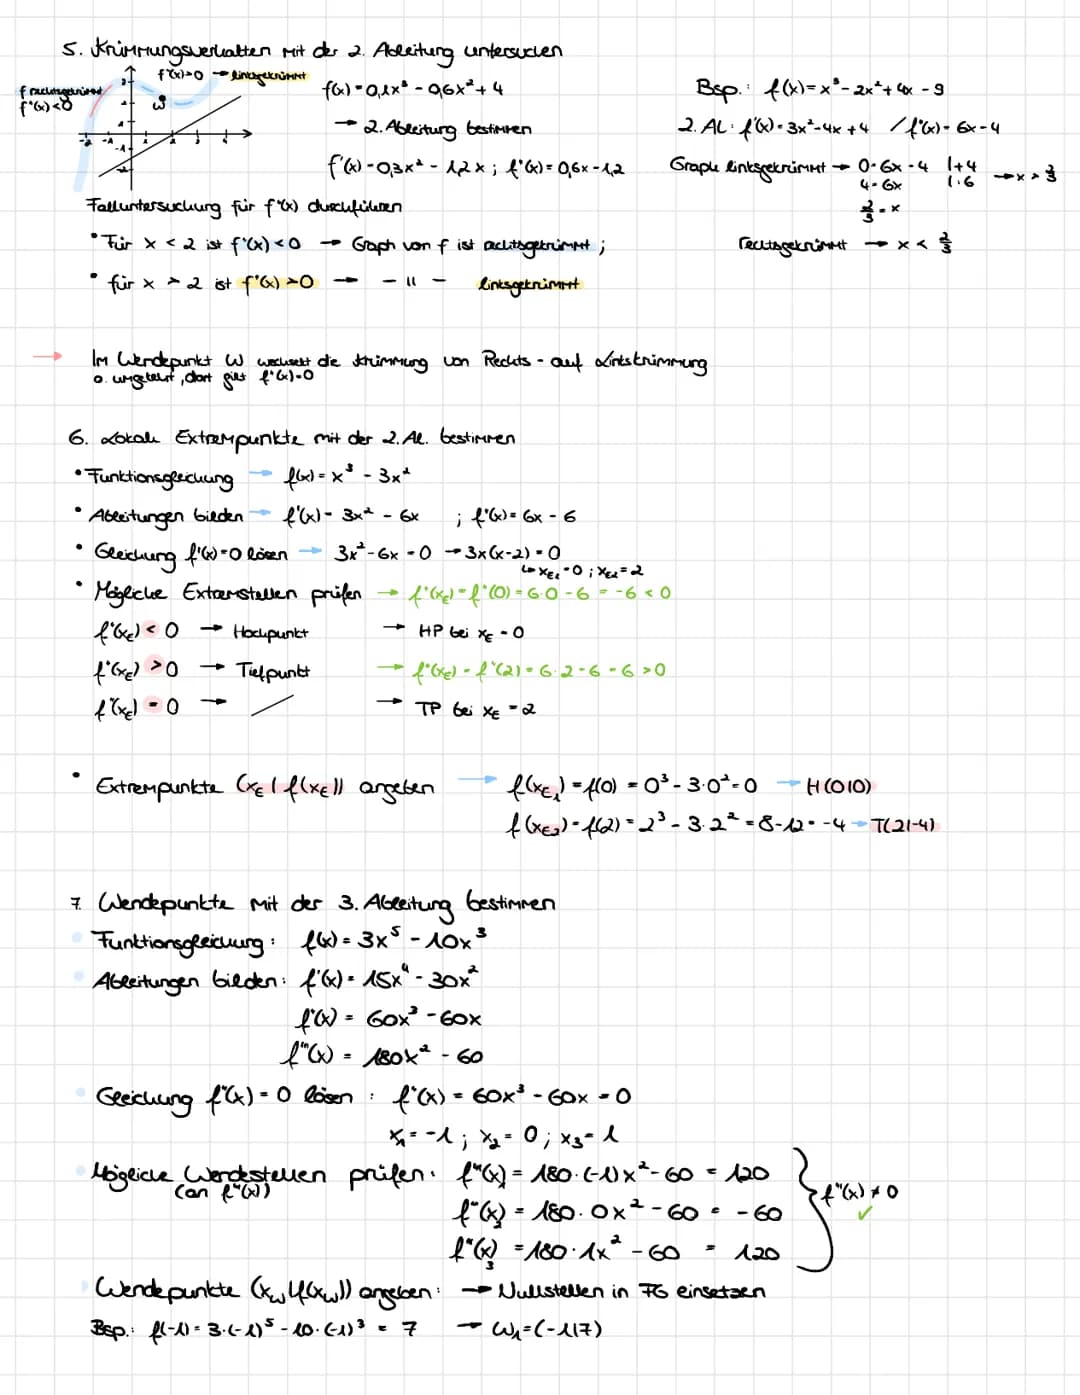 5. Krümmungsverhalten mit der 2. Ableitung untersuchen
f''(x)>0 → linksgekrümmt
f rechtsgekrümmt
f''(x)<0
W
f(x) = 0,1x³ - 0,6x² + 4
→ 2. Ableitung bestimmen
f'(x) = 0,3x² - 1,2x ; f''(x) = 0,6x - 1,2
Bsp.: f(x) = x³ - 2x² + 4x - 9
2. AL: f'(x) = 3x² - 4x + 4 / f''(x) = 6x - 4
Graph linksgekrümmt → 0 = 6x - 4 |+4
4 = 6x |:6 → x > 2/3
2/3 = x
rechtsgekrümmt → x < 2/3
Falluntersuchung für f''(x) durchführen
• Für x < 2 ist f''(x) < 0 → Graph von f ist rechtsgekrümmt ;
• für x > 2 ist f''(x) > 0 → - 11 - linksgekrümmt
→ Im Wendepunkt W wechselt die Krümmung von Rechts - auf Linkskrümmung
o. umgekehrt, dort gilt f''(x)=0
6. Lokale Extrempunkte mit der 2. AL. bestimmen
• Funktionsgleichung → f(x) = x³ - 3x²
• Ableitungen bilden → f'(x) = 3x² - 6x ; f''(x) = 6x - 6
• Gleichung f'(x)=0 lösen → 3x² - 6x = 0 → 3x(x-2) = 0
↳ xE1 = 0 ; xE2 = 2
• Mögliche Extremstellen prüfen → f''(xE) = f''(0) = 6·0 - 6 = -6 < 0
f''(xE) < 0 → Hochpunkt → HP bei xE = 0
f''(xE) > 0 → Tiefpunkt → f''(xE) = f''(2) = 6·2 - 6 = 6 > 0
f''(xE) = 0 → / → TP bei xE = 2
• Extrempunkte (xE | f(xE)) angeben → f(xE1) = f(0) = 0³ - 3·0² = 0 → H(0|0)
f(xE2) = f(2) = 2³ - 3·2² = 8 - 12 = -4 → T(2|-4)
7. Wendepunkte mit der 3. Ableitung bestimmen
• Funktionsgleichung: f(x) = 3x⁵ - 10x³
• Ableitungen bilden: f'(x) = 15x⁴ - 30x²
f''(x) = 60x³ - 60x
f'''(x) = 180x² - 60
• Gleichung f''(x) = 0 lösen : f''(x) = 60x³ - 60x = 0
x1 = -1 ; x2 = 0 ; x3 = 1
• Mögliche Wendestellen prüfen: f'''(x1) = 180·(-1)x² - 60 = 120
(an f'''(x))
f'''(x2) = 180·0x² - 60 = -60
f'''(x) ≠ 0 ✓
f'''(x3) = 180·1x² - 60 = 120
• Wendepunkte (xW | f(xW)) angeben: → Nullstellen in FG einsetzen
Bsp.: f(-1) = 3·(-1)⁵ - 10·(-1)³ = 7 → W1=(-1|7)